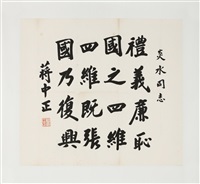 炎水同志
禮義廉恥
國之四維
四維既張
國乃復興
蔣中正